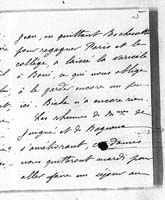 5
Jean, en quittant Bechevet
pour regagner Paris et le
collège, a laissé la varicelle
à Beni, ce qui nous oblige
à le garder encore un peu
ici. Biche n'a encore rien.
Les rhumes de Mmes de
Juigné et de Bagneux
s'améliorent, ces Dames
nous quitteront mardi pour
aller faire un séjour au